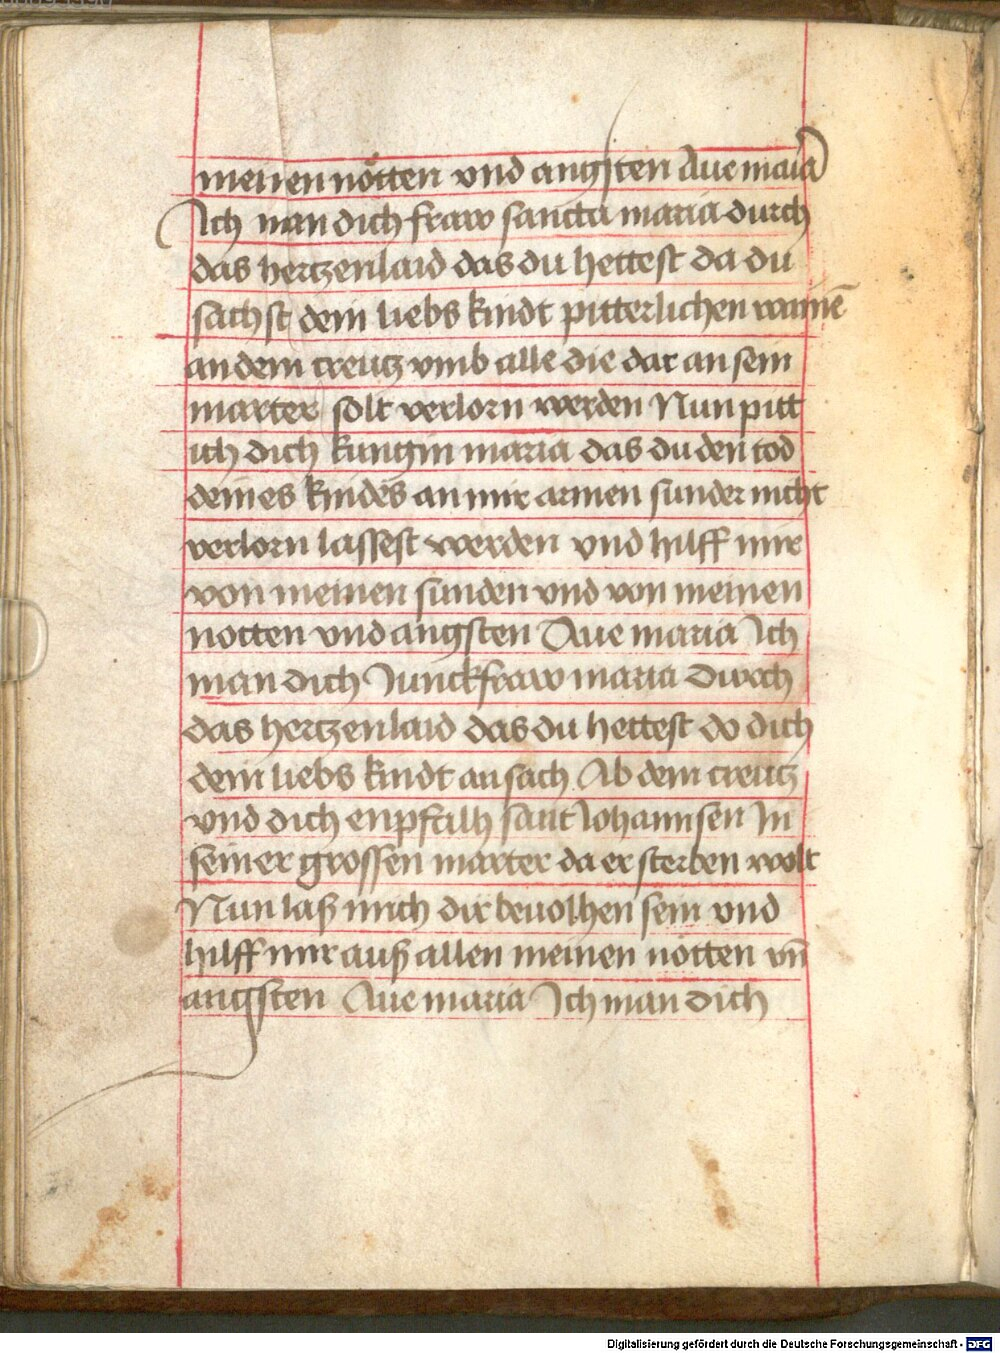 meinen nötten vnd angsten Aue maria
Ich man dich fraw sancta maria durch
das hertzenlaid das du hettest da du
sachst dein liebs kindt pitterlichen wainē
an dem creutz vmb alle die dar an sein
marter solt verlorn werden Nun pitt
ich dich kungin maria das du den tod
deines kindes an mir armen sunder nicht
verlorn lassest werden vnd hilff mir
von meinen sunden vnd von meinen
notten vnd angsten Aue maria Ich
man dich Junckfraw maria durch
das hertzenlaid das du hettest do dich
dein liebs kindt an sach Ab dem creutz
vnd dich enpfalh sant Johannsen In
seiner grossen marter da er sterben wolt
Nun laß mich dir beuolhen sein vnd
hilff mir auß allen meinen nötten vn̄
angsten Aue maria Ich man dich
Digitalisierung gefördert durch die Deutsche Forschungsgemeinschaft - DFG